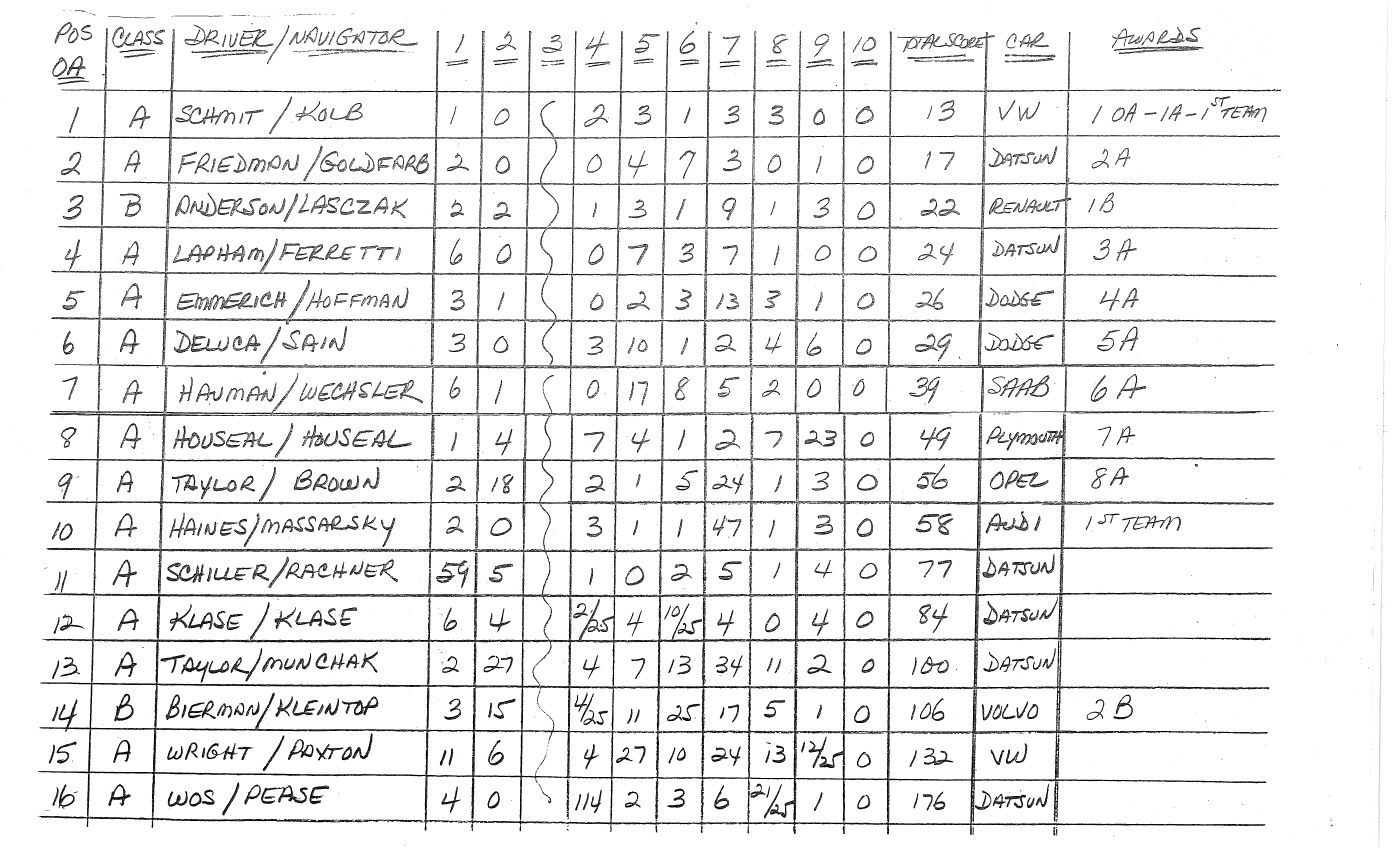 POS OA CLASS DRIVER/NAVIGATOR 1 2 3 4 5 6 7 8 9 10 TOTAL SCORE CAR AWARDS
1 A SCHMIT / KOLB 1 0 2 3 1 3 3 0 0 13 VW 1 OA - 1A - 1ST TEAM
2 A FRIEDMAN / GOLDFARB 2 0 0 4 7 3 0 1 0 17 DATSUN 2A
3 B ANDERSON/LASCZAK 2 2 1 3 1 9 1 3 0 22 RENAULT 1B
4 A LAPHAM/FERRETTI 6 0 0 7 3 7 1 0 0 24 DATSUN 3A
5 A EMMERICH / HOFFMAN 3 1 0 2 3 13 3 1 0 26 DODGE 4A
6 A DELUCA / SAIN 3 0 3 10 1 2 4 6 0 29 DODGE 5A
7 A HAUMAN / WECHSLER 6 1 0 17 8 5 2 0 0 39 SAAB 6A
8 A HOUSEAL / HOUSEAL 1 4 7 4 1 2 7 23 0 49 PLYMOUTH 7A
9 A TAYLOR / BROWN 2 18 2 1 5 24 1 3 0 56 OPEL 8A
10 A HAINES/MASSARSKY 2 0 3 1 1 47 1 3 0 58 AUDI 1ST TEAM
11 A SCHILLER/RACHNER 59 5 1 0 2 5 1 4 0 77 DATSUN
12 A KLASE / KLASE 6 4 2/25 4 10/25 4 0 4 0 84 DATSUN
13 A TAYLOR/MUNCHAK 2 27 4 7 13 34 11 2 0 100 DATSUN
14 B BIERMAN/KLEINTOP 3 15 4/25 11 25 17 5 1 0 106 VOLVO 2B
15 A WRIGHT / PAXTON 11 6 4 27 10 24 13 12/25 0 132 VW
16 A WOS / PEASE 4 0 114 2 3 6 21/25 1 0 176 DATSUN